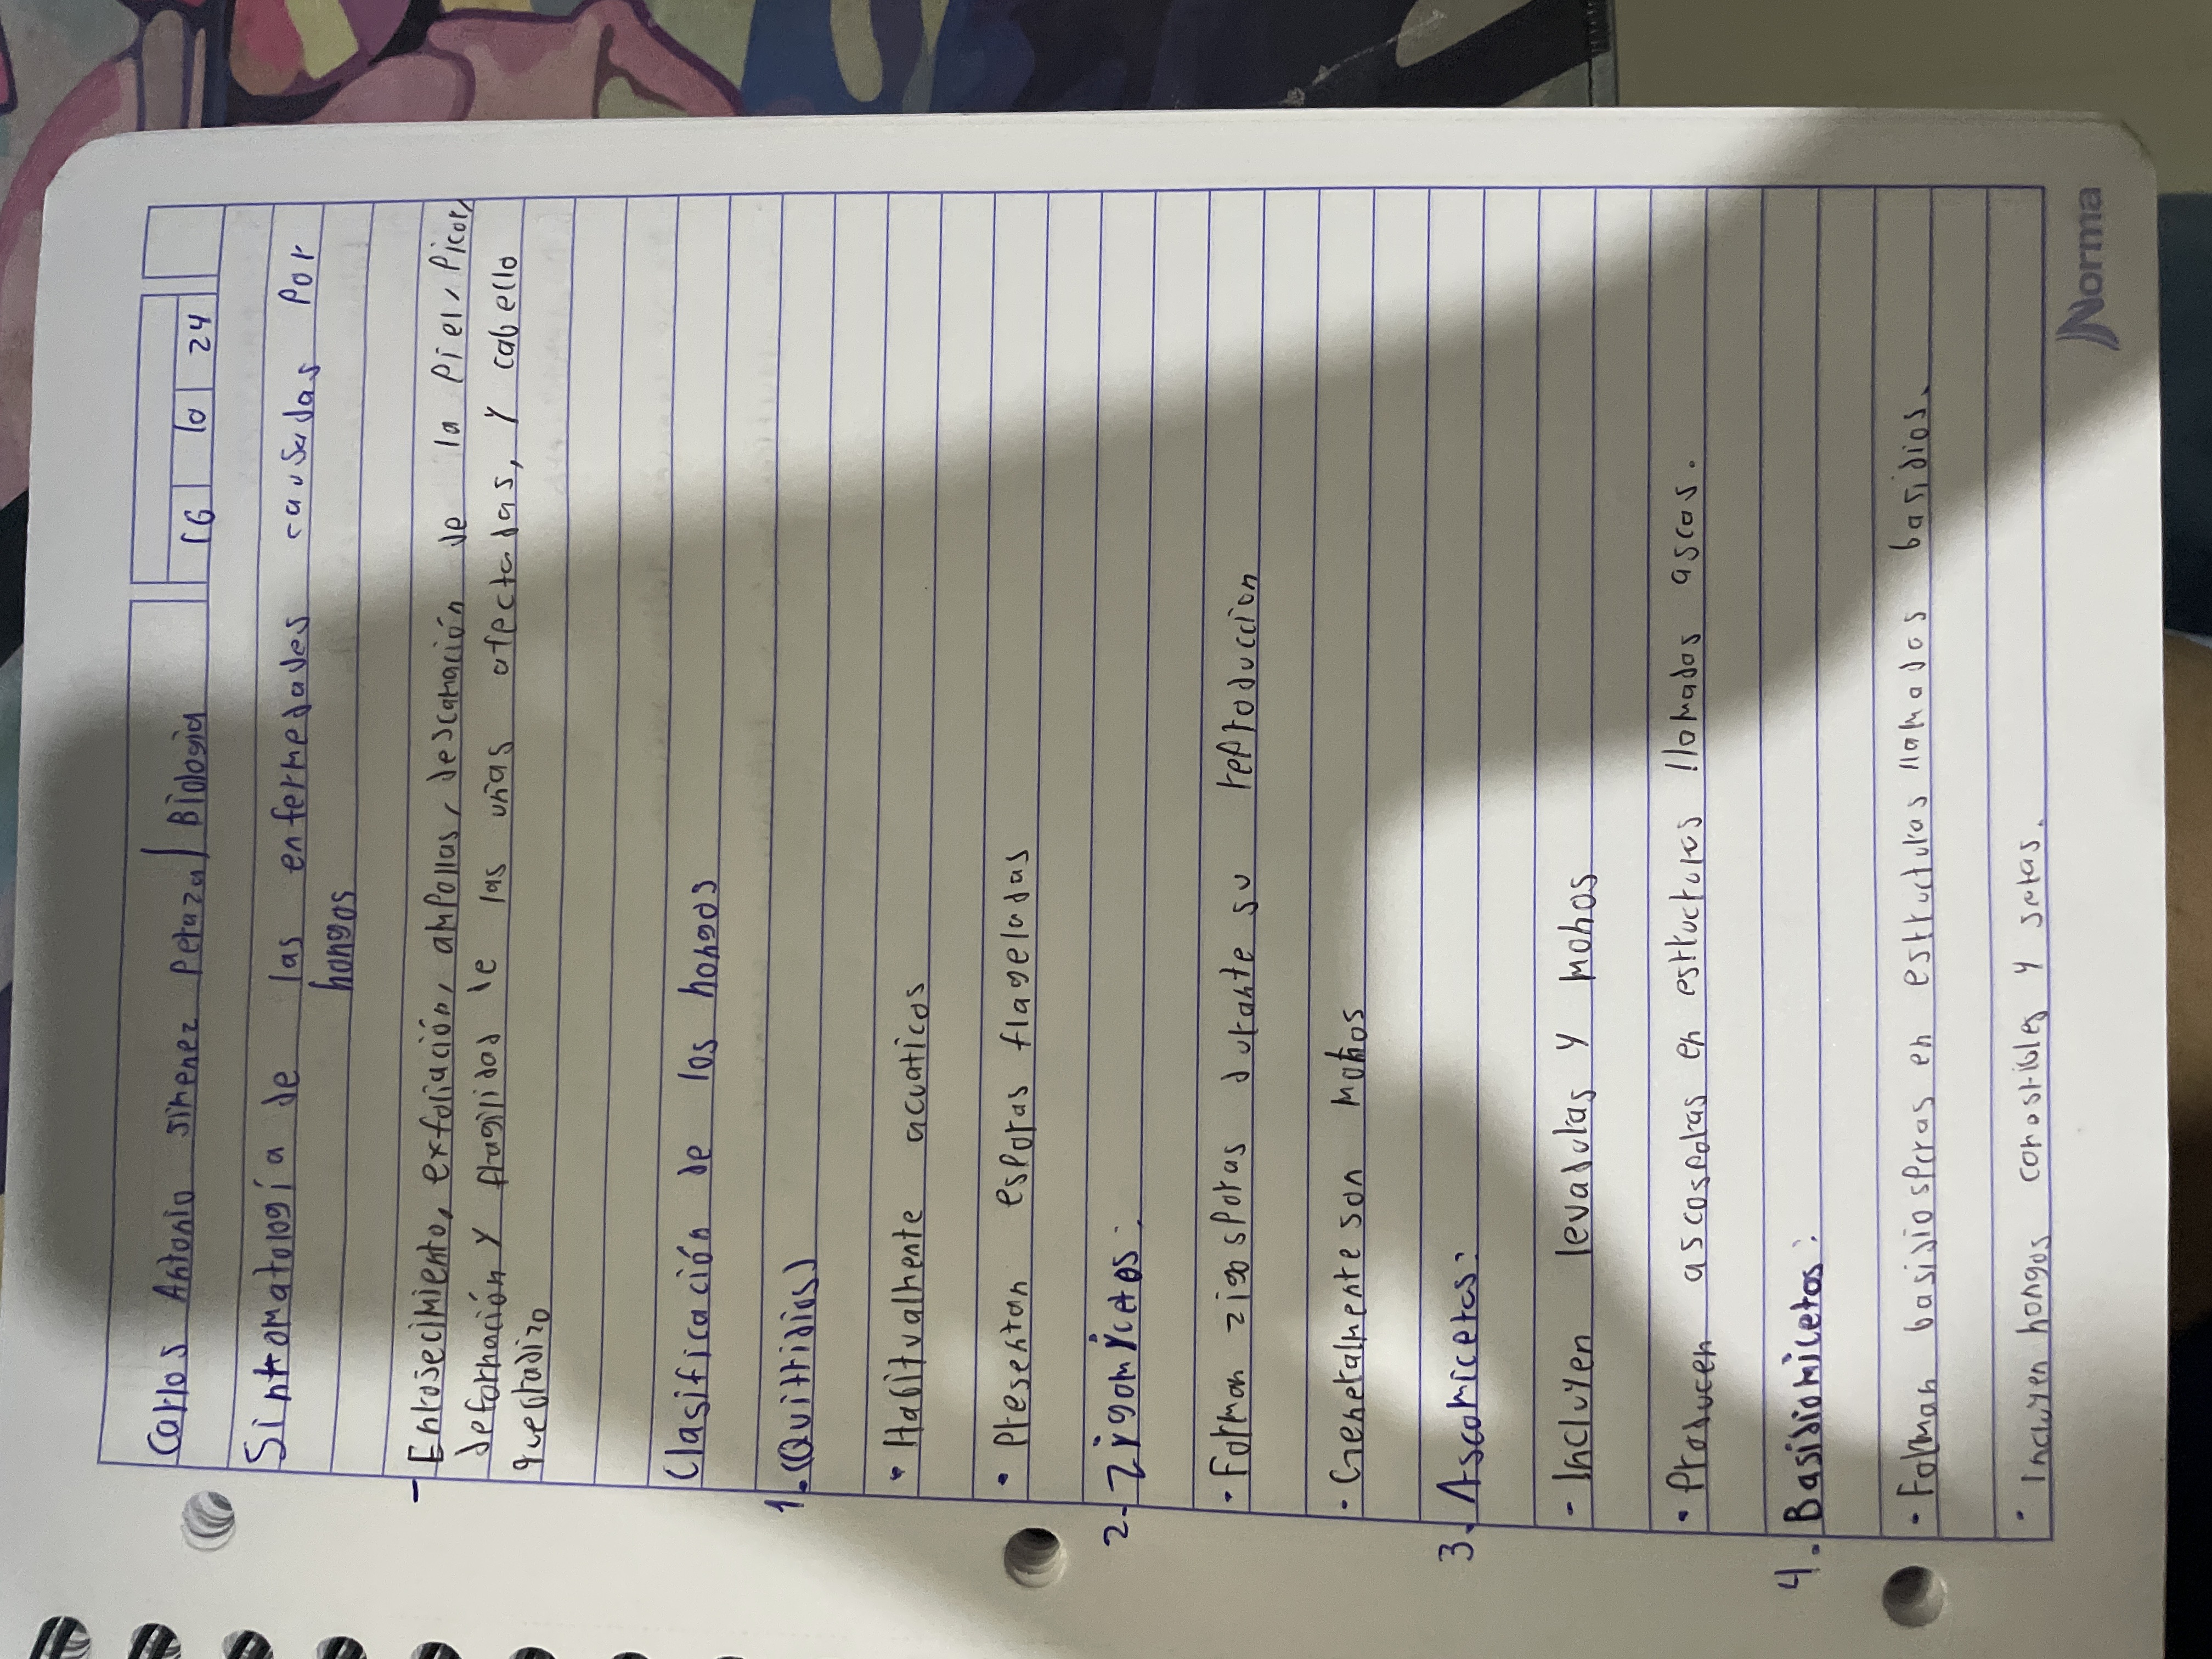 Carlos Antonio Jimenez Peraza / Biología
16 10 24
Sintomatología de las enfermedades causadas por
hongos
- Enrojecimiento, exfoliación, ampollas, descamación de la piel, picor,
deformación y fragilidad de las uñas afectadas, y cabello
quebradizo
Clasificación de los hongos
1. (Quitridios)
• Habitualmente acuaticos
• Presentan esporas flageladas
2- Zigomycetos:
• Forman zigosporas durante su reproduccion
• Generalmente son mohos
3. Ascomicetos:
- Incluyen levaduras y mohos
• Producen ascosporas en estructuras llamadas ascas.
4. Basidiomicetos:
• Forman basidiosporas en estructuras llamadas basidios.
• Incluyen hongos comestibles y setas.
Norma